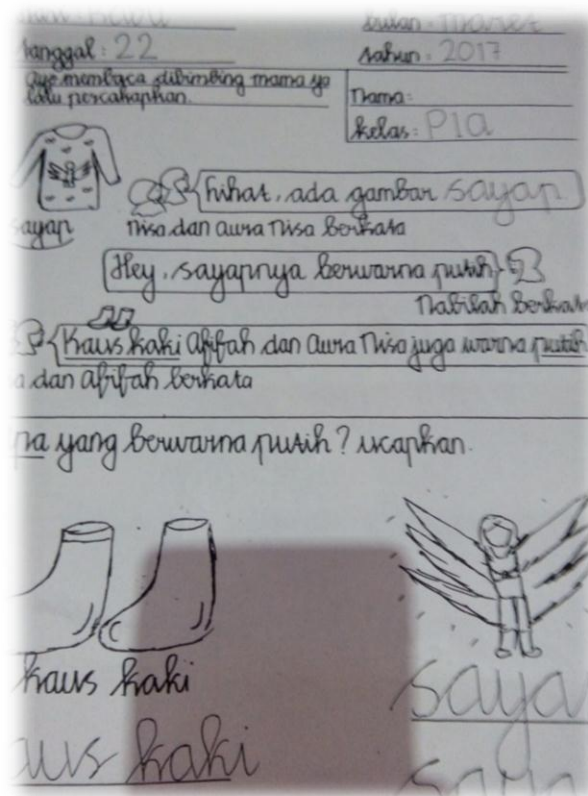 bulan : maret
tanggal : 22
tahun : 2017
ayo membaca dibimbing mama ya
lalu percakapkan.
nama :
kelas : P1a
sayap
lihat, ada gambar sayap
nisa dan aura nisa berkata
Hey, sayapnya berwarna putih
nabilah berkata
Kaus kaki afifah dan aura nisa juga warna putih
dan afifah berkata
yang berwarna putih? ucapkan.
kaus kaki
kaki